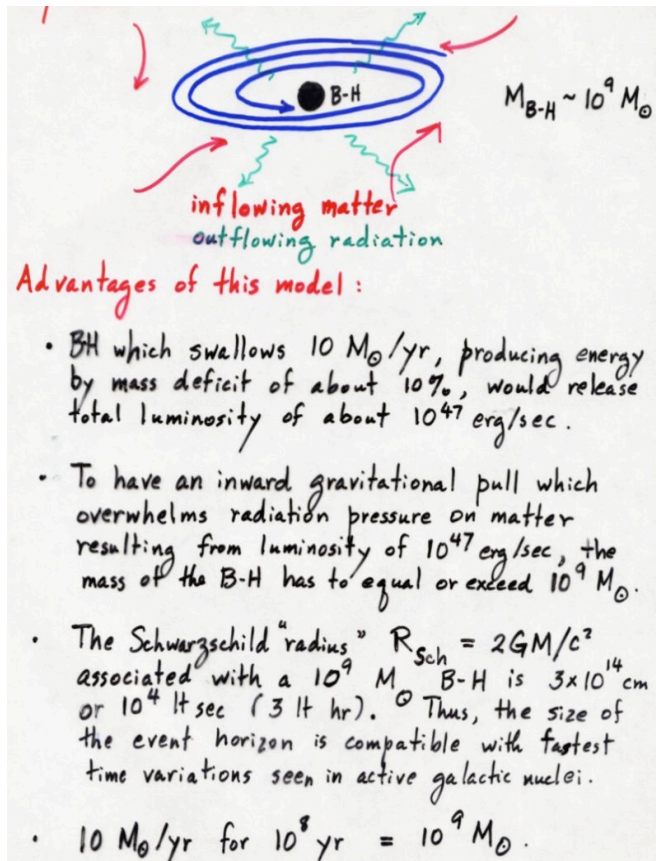 B-H
M_B-H ~ 10⁹ M⊙
inflowing matter
outflowing radiation
Advantages of this model :
• BH which swallows 10 M⊙/yr, producing energy
by mass deficit of about 10%, would release
total luminosity of about 10⁴⁷ erg/sec.
• To have an inward gravitational pull which
overwhelms radiation pressure on matter
resulting from luminosity of 10⁴⁷ erg/sec, the
mass of the B-H has to equal or exceed 10⁹ M⊙.
• The Schwarzschild "radius" R_Sch = 2GM/c²
associated with a 10⁹ M⊙ B-H is 3×10¹⁴ cm
or 10⁴ lt sec (3 lt hr). Thus, the size of
the event horizon is compatible with fastest
time variations seen in active galactic nuclei.
• 10 M⊙/yr for 10⁸ yr = 10⁹ M⊙.